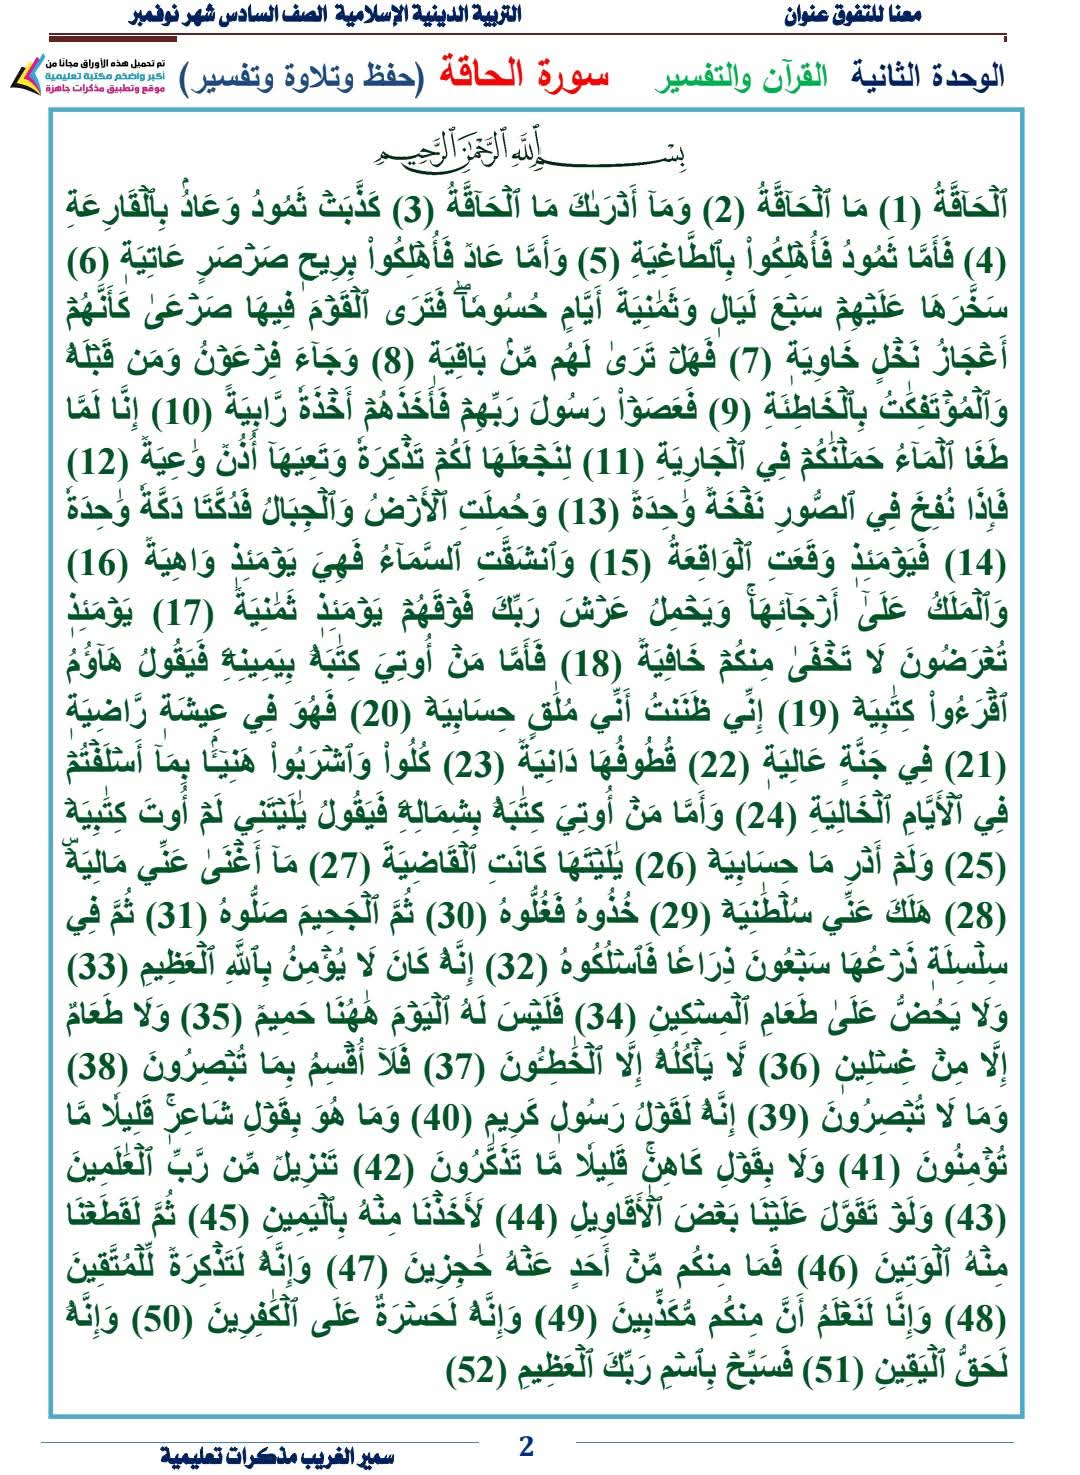 معنا للتفوق عنوان
التربية الدينية الإسلامية الصف السادس شهر نوفمبر
الوحدة الثانية القرآن والتفسير سورة الحاقة (حفظ وتلاوة وتفسير)
تم تحميل هذه الأوراق مجانا من
أكبر وأضخم مكتبة تعليمية
موقع وتطبيق مذكرات جاهزة
بِسۡمِ ٱللَّهِ ٱلرَّحۡمَٰنِ ٱلرَّحِيمِ
ٱلۡحَآقَّةُ (1) مَا ٱلۡحَآقَّةُ (2) وَمَآ أَدۡرَىٰكَ مَا ٱلۡحَآقَّةُ (3) كَذَّبَتۡ ثَمُودُ وَعَادُۢ بِٱلۡقَارِعَةِ
(4) فَأَمَّا ثَمُودُ فَأُهۡلِكُواْ بِٱلطَّاغِيَةِ (5) وَأَمَّا عَادٞ فَأُهۡلِكُواْ بِرِيحٖ صَرۡصَرٍ عَاتِيَةٖ (6)
سَخَّرَهَا عَلَيۡهِمۡ سَبۡعَ لَيَالٖ وَثَمَٰنِيَةَ أَيَّامٍ حُسُومٗاۖ فَتَرَى ٱلۡقَوۡمَ فِيهَا صَرۡعَىٰ كَأَنَّهُمۡ
أَعۡجَازُ نَخۡلٍ خَاوِيَةٖ (7) فَهَلۡ تَرَىٰ لَهُم مِّنۢ بَاقِيَةٖ (8) وَجَآءَ فِرۡعَوۡنُ وَمَن قَبۡلَهُۥ
وَٱلۡمُؤۡتَفِكَٰتُ بِٱلۡخَاطِئَةِ (9) فَعَصَوۡاْ رَسُولَ رَبِّهِمۡ فَأَخَذَهُمۡ أَخۡذَةٗ رَّابِيَةً (10) إِنَّا لَمَّا
طَغَا ٱلۡمَآءُ حَمَلۡنَٰكُمۡ فِي ٱلۡجَارِيَةِ (11) لِنَجۡعَلَهَا لَكُمۡ تَذۡكِرَةٗ وَتَعِيَهَآ أُذُنٞ وَٰعِيَةٞ (12)
فَإِذَا نُفِخَ فِي ٱلصُّورِ نَفۡخَةٞ وَٰحِدَةٞ (13) وَحُمِلَتِ ٱلۡأَرۡضُ وَٱلۡجِبَالُ فَدُكَّتَا دَكَّةٗ وَٰحِدَةٗ
(14) فَيَوۡمَئِذٖ وَقَعَتِ ٱلۡوَاقِعَةُ (15) وَٱنشَقَّتِ ٱلسَّمَآءُ فَهِيَ يَوۡمَئِذٖ وَاهِيَةٞ (16)
وَٱلۡمَلَكُ عَلَىٰٓ أَرۡجَآئِهَاۚ وَيَحۡمِلُ عَرۡشَ رَبِّكَ فَوۡقَهُمۡ يَوۡمَئِذٖ ثَمَٰنِيَةٞ (17) يَوۡمَئِذٖ
تُعۡرَضُونَ لَا تَخۡفَىٰ مِنكُمۡ خَافِيَةٞ (18) فَأَمَّا مَنۡ أُوتِيَ كِتَٰبَهُۥ بِيَمِينِهِۦ فَيَقُولُ هَآؤُمُ
ٱقۡرَءُواْ كِتَٰبِيَهۡ (19) إِنِّي ظَنَنتُ أَنِّي مُلَٰقٍ حِسَابِيَهۡ (20) فَهُوَ فِي عِيشَةٖ رَّاضِيَةٖ
(21) فِي جَنَّةٍ عَالِيَةٖ (22) قُطُوفُهَا دَانِيَةٞ (23) كُلُواْ وَٱشۡرَبُواْ هَنِيٓـَٔۢا بِمَآ أَسۡلَفۡتُمۡ
فِي ٱلۡأَيَّامِ ٱلۡخَالِيَةِ (24) وَأَمَّا مَنۡ أُوتِيَ كِتَٰبَهُۥ بِشِمَالِهِۦ فَيَقُولُ يَٰلَيۡتَنِي لَمۡ أُوتَ كِتَٰبِيَهۡ
(25) وَلَمۡ أَدۡرِ مَا حِسَابِيَهۡ (26) يَٰلَيۡتَهَا كَانَتِ ٱلۡقَاضِيَةَ (27) مَآ أَغۡنَىٰ عَنِّي مَالِيَهۡۜ
(28) هَلَكَ عَنِّي سُلۡطَٰنِيَهۡ (29) خُذُوهُ فَغُلُّوهُ (30) ثُمَّ ٱلۡجَحِيمَ صَلُّوهُ (31) ثُمَّ فِي
سِلۡسِلَةٖ ذَرۡعُهَا سَبۡعُونَ ذِرَاعٗا فَٱسۡلُكُوهُ (32) إِنَّهُۥ كَانَ لَا يُؤۡمِنُ بِٱللَّهِ ٱلۡعَظِيمِ (33)
وَلَا يَحُضُّ عَلَىٰ طَعَامِ ٱلۡمِسۡكِينِ (34) فَلَيۡسَ لَهُ ٱلۡيَوۡمَ هَٰهُنَا حَمِيمٞ (35) وَلَا طَعَامٌ
إِلَّا مِنۡ غِسۡلِينٖ (36) لَّا يَأۡكُلُهُۥٓ إِلَّا ٱلۡخَٰطِـُٔونَ (37) فَلَآ أُقۡسِمُ بِمَا تُبۡصِرُونَ (38)
وَمَا لَا تُبۡصِرُونَ (39) إِنَّهُۥ لَقَوۡلُ رَسُولٖ كَرِيمٖ (40) وَمَا هُوَ بِقَوۡلِ شَاعِرٖۚ قَلِيلٗا مَّا
تُؤۡمِنُونَ (41) وَلَا بِقَوۡلِ كَاهِنٖۚ قَلِيلٗا مَّا تَذَكَّرُونَ (42) تَنزِيلٞ مِّن رَّبِّ ٱلۡعَٰلَمِينَ
(43) وَلَوۡ تَقَوَّلَ عَلَيۡنَا بَعۡضَ ٱلۡأَقَاوِيلِ (44) لَأَخَذۡنَا مِنۡهُ بِٱلۡيَمِينِ (45) ثُمَّ لَقَطَعۡنَا
مِنۡهُ ٱلۡوَتِينَ (46) فَمَا مِنكُم مِّنۡ أَحَدٍ عَنۡهُ حَٰجِزِينَ (47) وَإِنَّهُۥ لَتَذۡكِرَةٞ لِّلۡمُتَّقِينَ
(48) وَإِنَّا لَنَعۡلَمُ أَنَّ مِنكُم مُّكَذِّبِينَ (49) وَإِنَّهُۥ لَحَسۡرَةٌ عَلَى ٱلۡكَٰفِرِينَ (50) وَإِنَّهُۥ
لَحَقُّ ٱلۡيَقِينِ (51) فَسَبِّحۡ بِٱسۡمِ رَبِّكَ ٱلۡعَظِيمِ (52)
2
سمير الغريب مذكرات تعليمية